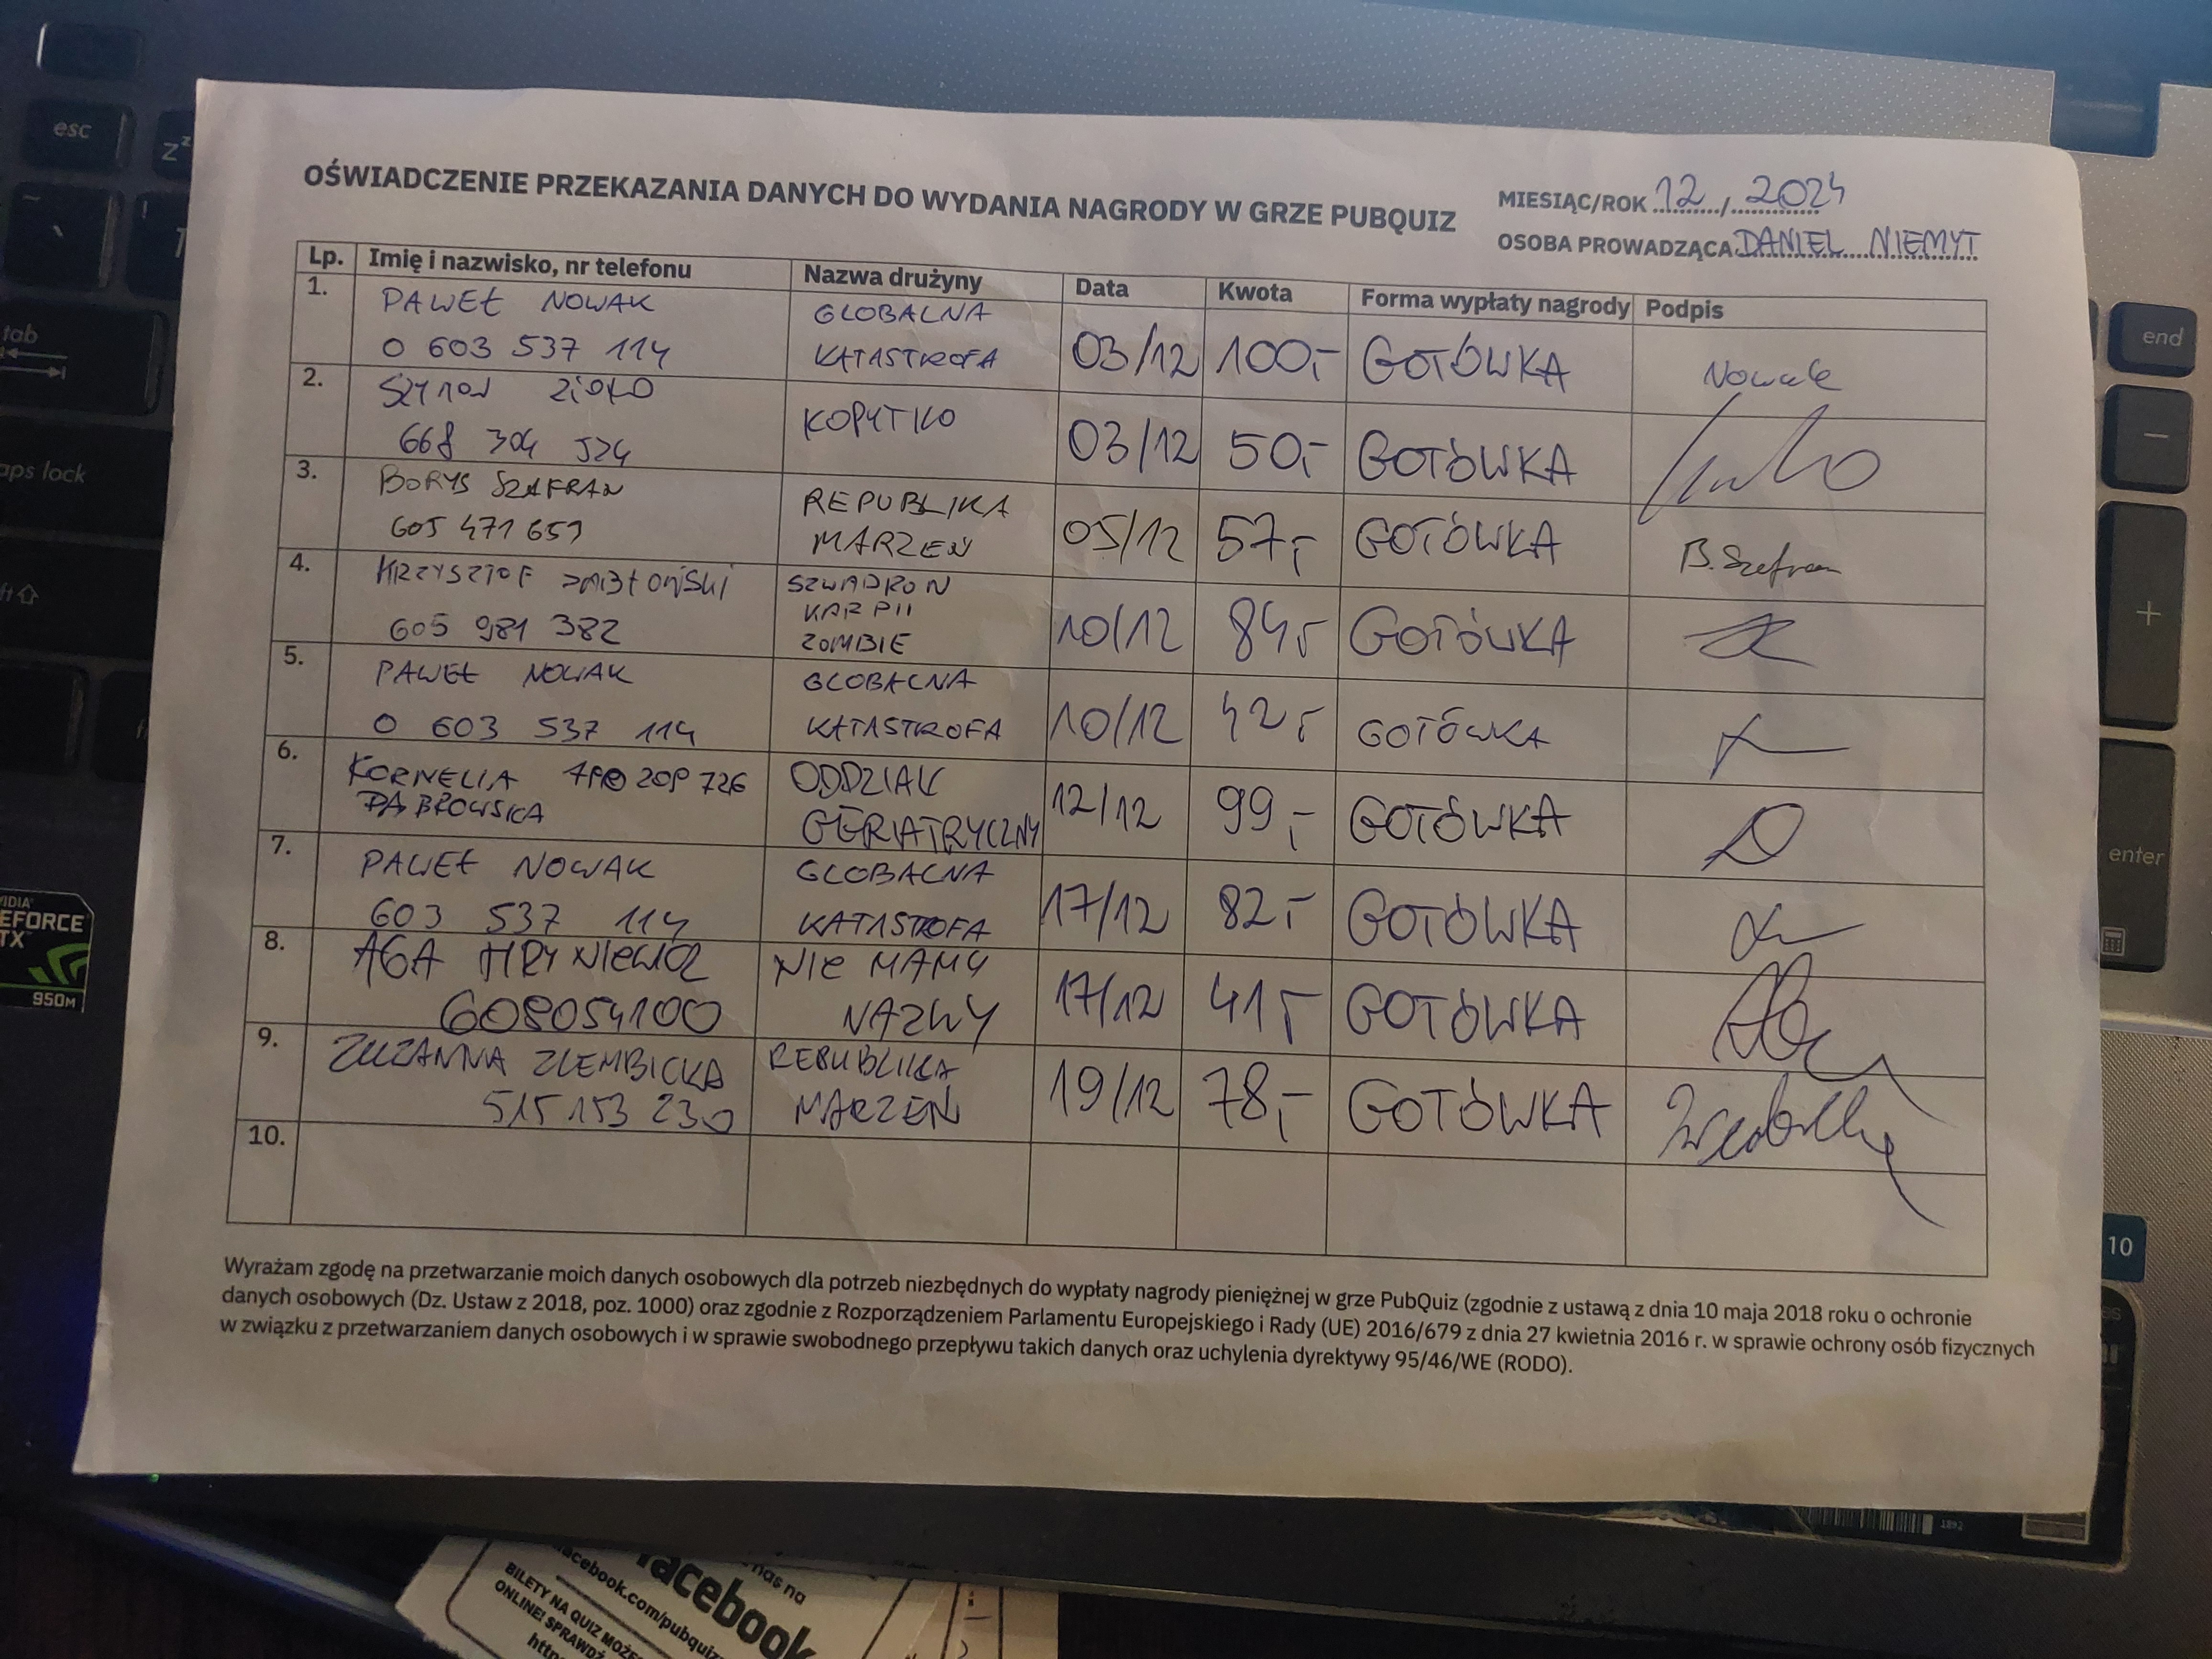 OŚWIADCZENIE PRZEKAZANIA DANYCH DO WYDANIA NAGRODY W GRZE PUBQUIZ
MIESIĄC/ROK 12 / 2024
OSOBA PROWADZĄCA DANIEL NIEMYT
Lp. Imię i nazwisko, nr telefonu Nazwa drużyny Data Kwota Forma wypłaty nagrody Podpis
1. PAWEŁ NOWAK GLOBALNA
0 603 537 114 KATASTROFA 03/12 100,- GOTÓWKA Nowak
2. SZYMON ZIOŁO KOPYTKO
668 304 524 03/12 50,- GOTÓWKA
3. BORYS SZAFRAN REPUBLIKA
605 471 659 MARZEŃ 05/12 57,- GOTÓWKA B. Szafran
4. KRZYSZTOF SZWADRON
KARPII
605 981 382 ZOMBIE 10/12 84,- GOTÓWKA
5. PAWEŁ NOWAK GLOBALNA
0 603 537 114 KATASTROFA 10/12 42,- GOTÓWKA
6. KORNELIA 726 ODDZIAŁ
DĄBROWSKA GERIATRYCZNY 12/12 99,- GOTÓWKA
7. PAWEŁ NOWAK GLOBALNA
603 537 114 KATASTROFA 17/12 82,- GOTÓWKA
8. AGA HRYNIEWICZ NIE MAMY
608054100 NAZWY 17/12 41,- GOTÓWKA
9. ZUZANNA ZLEMBICKA REBUBLIKA
515 153 230 MARZEŃ 19/12 78,- GOTÓWKA
10.
Wyrażam zgodę na przetwarzanie moich danych osobowych dla potrzeb niezbędnych do wypłaty nagrody pieniężnej w grze PubQuiz (zgodnie z ustawą z dnia 10 maja 2018 roku o ochronie
danych osobowych (Dz. Ustaw z 2018, poz. 1000) oraz zgodnie z Rozporządzeniem Parlamentu Europejskiego i Rady (UE) 2016/679 z dnia 27 kwietnia 2016 r. w sprawie ochrony osób fizycznych
w związku z przetwarzaniem danych osobowych i w sprawie swobodnego przepływu takich danych oraz uchylenia dyrektywy 95/46/WE (RODO).
esc
tab
caps lock
end
enter
10
950M
nas na
facebook
facebook.com/pubquiz
BILETY NA QUIZ
ONLINE!